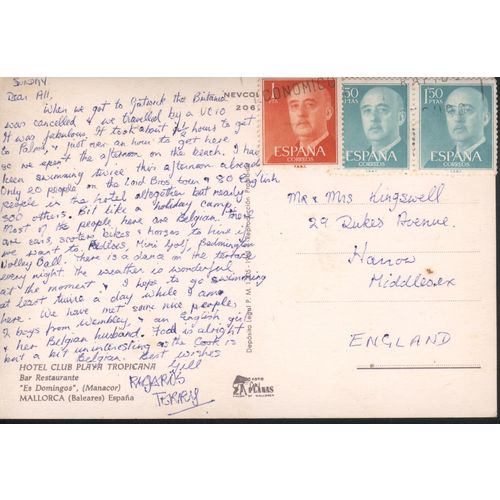 SUNDAY.
Dear All,
When we got to Gatwick the Britania
was cancelled & we travelled by a VC10
It was fabulous. It took about hours to get
to Palma, & just over an hour to get here
so we spent the afternoon on the beach. I have
been swimming twice this afternoon already
Only 20 people on the Lord Bros tour & 80 English
people in the hotel altogether but nearly
300 others. Bit like a holiday camp!
Most of the people here are Belgian. There
are cars, scooters, bikes & horses to hire if
we want to. Pedloes, Mini Golf, Badmington
Volley Ball. There is a dance on the terrace
every night. The weather is wonderful
at the moment & I hope to go swimming
at least twice a day while I am
here. We have met some nice people,
2 boys from Wembley, & an English girl
& her Belgian husband. Food is alright
but a bit uninteresting as the Cook is
Belgian. Best wishes
Gill
REGARDS
TERRY
HOTEL CLUB PLAYA TROPICANA
Bar Restaurante
"Es Domingos", (Manacor)
MALLORCA (Baleares) España
NEVCOL
206
Depósito Legal P. M.
ECONOMICO
ESPAÑA
CORREOS
1'50
PTAS
ESPAÑA
CORREOS
1'50
PTAS
ESPAÑA
CORREOS
Mr & Mrs Kingswell
29 Dukes Avenue.
Harrow
Middlesex
ENGLAND
FOTO
PLANAS
DE MALLORCA